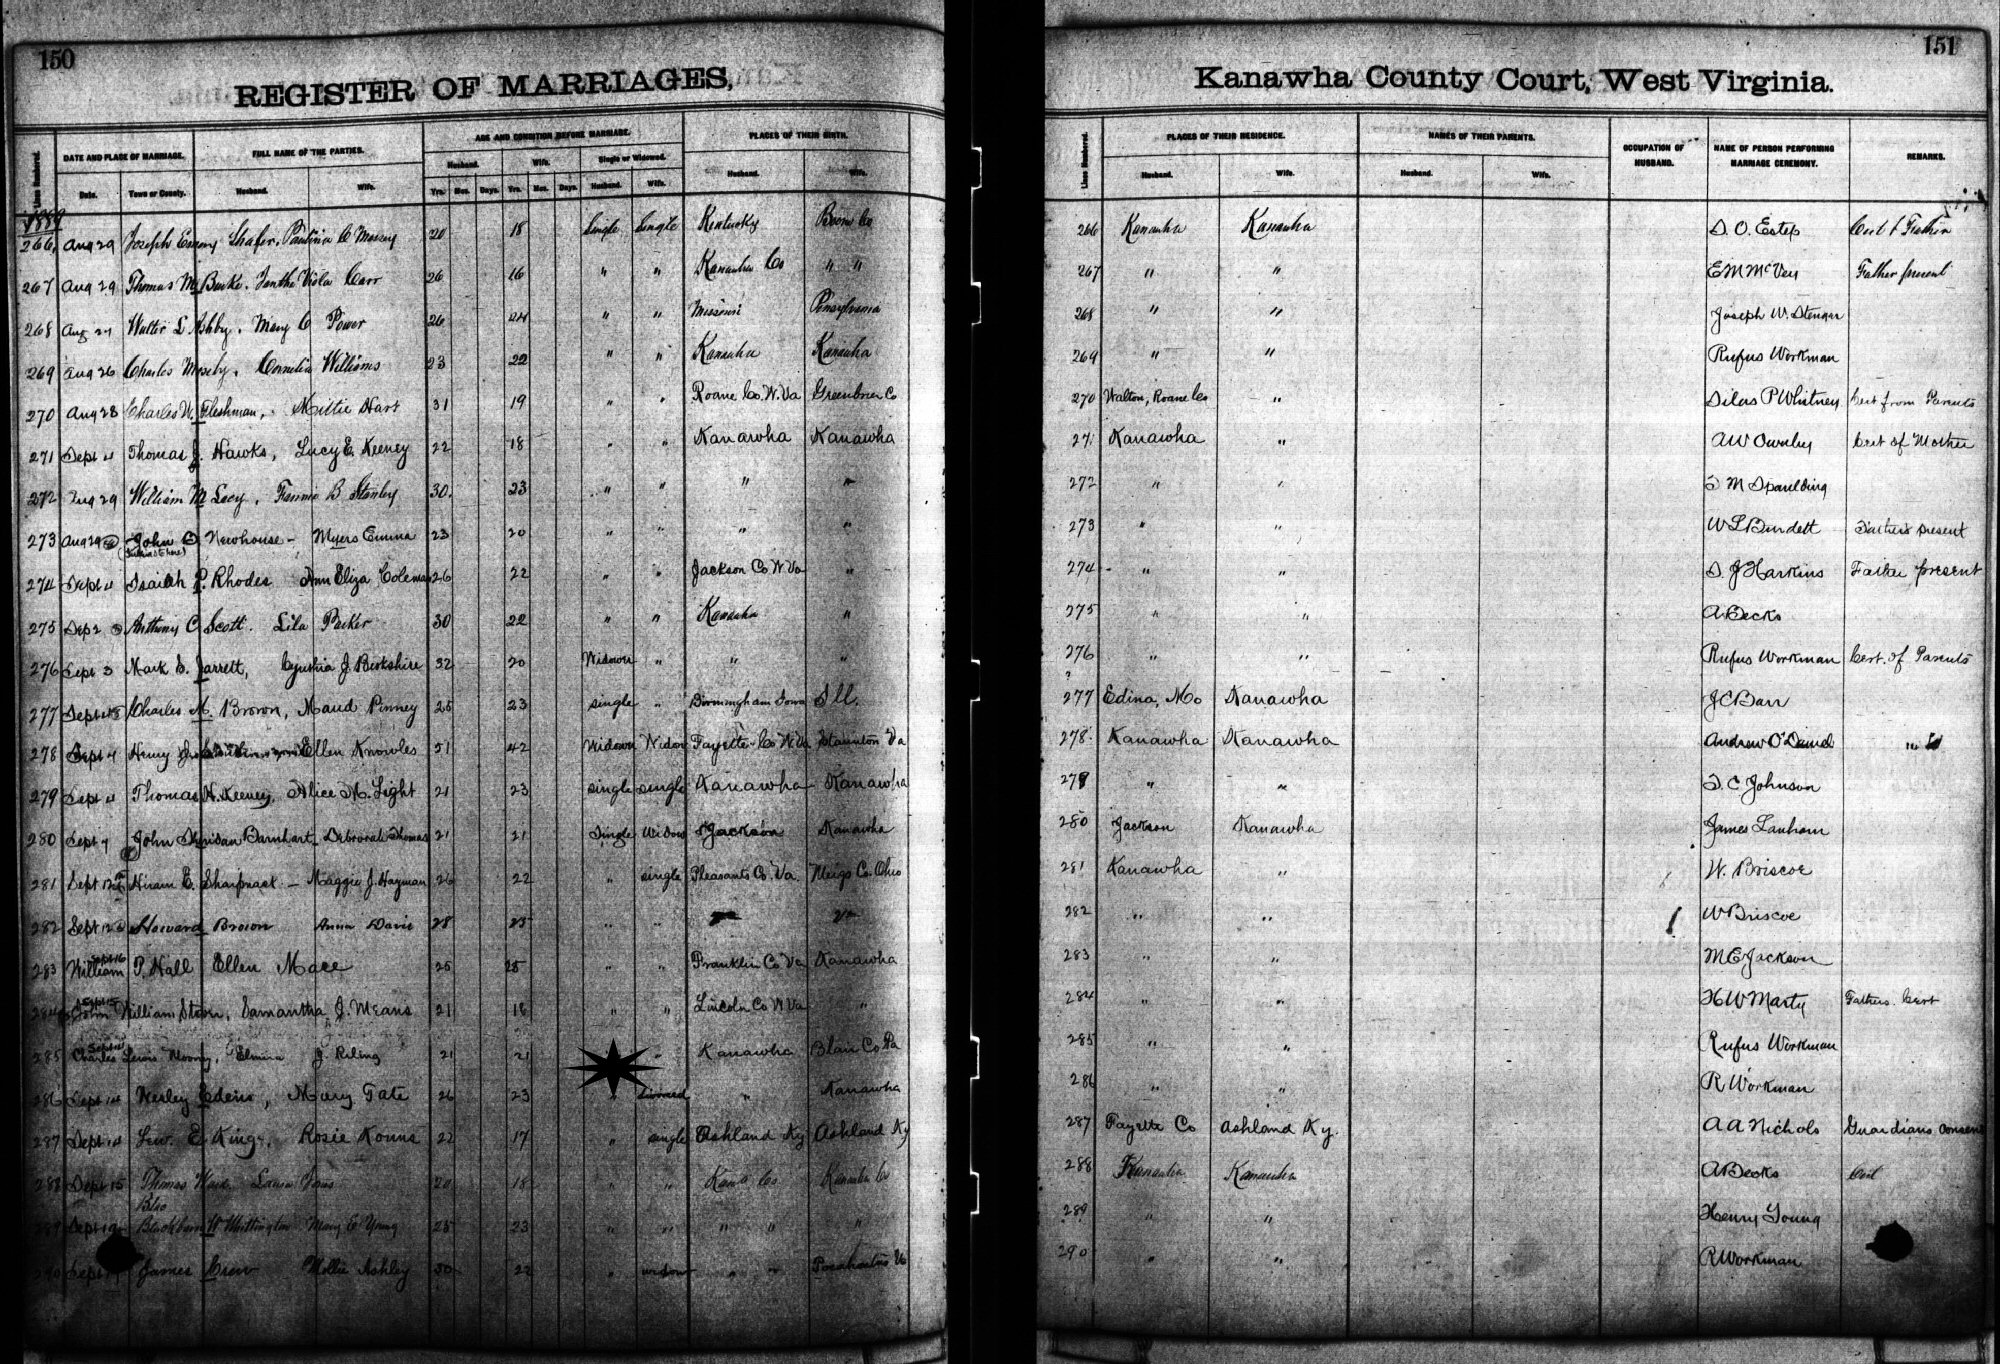 150
REGISTER OF MARRIAGES,
Lines Numbered. DATE AND PLACE OF MARRIAGE. FULL NAME OF THE PARTIES. AGE AND CONDITION BEFORE MARRIAGE. PLACES OF THEIR BIRTH.
Husband. Wife. Single or Widowed.
Date. Town or County. Husband. Wife. Yrs. Mos. Days. Yrs. Mos. Days. Husband. Wife. Husband. Wife.
1889
266 Aug 29 Joseph Shafer, Paulina C Massey 20 18 Single Single Kentucky Boone Co
267 Aug 29 Thomas M Burke. Ianthe Viola Carr 26 16 " " Kanawha Co " "
268 Aug 27 Walter L Ashby. Mary C Power 26 " " Missouri Pensylvania
269 Aug 26 Charles Moseby. Cornelia Williams 23 22 " " Kanawha Kanawha
270 Aug 28 Charles W. Fleshman, Mittie Hart 31 19 " " Roane Co. W. Va Greenbrier C
271 Sept 4 Thomas J. Hawks, Lucy E. Keeney 22 18 " " Kanawha Kanawha
272 Aug 29 William M Lacy. Fannie B Stanley 30. 23 " " " "
273 Aug 29 John Newhouse - Myers Emma 23 20 " " " "
274 Sept 4 Isaiah P. Rhodes Ann Eliza Coleman 26 22 " " Jackson Co W Va "
275 Sep 2 Anthony C Scott. Lila Parker 30 22 " " Kanawha "
276 Sept 3 Mark S. Jarrett, Cynthia J. Berkshire 32 20 Widower " " "
277 Sept Charles M. Brown, Maud Pinney 25 23 single " Birmingham Iowa Ill.
278 Sept 4 Henry Ellen Knowles 51 42 Widower Widow Fayette Co W. Va Staunton Va
279 Sept 4 Thomas N. Keeney, Alice M. Light 21 23 single single Kanawha Kanawha
280 Sept 7 John Sheridan Barnhart - Deborah Thomas 21 21 Single Widow Jackson Kanawha
281 Sept 12 Hiram E. Sharpnack - Maggie J. Hayman 26 22 " single Pleasants Co. Va. Meigs Co. Ohio
282 Sept 12 Howard Brown Anna Davis 28 25 " "
283 Sept 16 William P. Hall Ellen Mace 25 25 " " Franklin Co Va Kanawha
284 Sept 15 John William Stover, Samantha J. Means 21 18 " " Lincoln Co W Va "
285 Sept Charles Lewis Moony, Elmira J. Riling 21 21 " Kanawha Blair Co Pa
286 Sept Wesley Edens, Mary Tate 26 23 " " Kanawha
287 Sept 14 Lew. E King, Rosie Kouns 22 17 " single Ashland Ky Ashland Ky
288 Sept 15 Thomas Ward Laura Jones 20 18 " " Kana Co Kanawha Co
289 Sept 19 Blackburn W Whittington Mary E Young 25 23 " " " " "
290 Sept James Crew Mollie Ashley 30 22 " widow " " Pocahontas
151
Kanawha County Court, West Virginia.
Lines Numbered. PLACES OF THEIR RESIDENCE. NAMES OF THEIR PARENTS. OCCUPATION OF HUSBAND. NAME OF PERSON PERFORMING MARRIAGE CEREMONY. REMARKS.
Husband. Wife. Husband. Wife.
266 Kanawha Kanawha S. O. Estep Cert of Father
267 " " E M McVey Father present
268 " " Joseph W. Stenger
269 " " Rufus Workman
270 Walton, Roane Co " Silas P Whitney Cert from Parents
27 Kanawha " A W Ownby Cert of Mother
272 " " M Spaulding
273 " " W S Burdett Fathers present
274 " " S. J Harkins Father present
275 " " A Becks
276 " " Rufus Workman Cert. of Parents
277 Edina, Mo Kanawha J C Barr
278 Kanawha Kanawha Andrew O'Daniel
279 " " S. C Johnson
280 Jackson Kanawha James Lanham
281 Kanawha " W. Briscoe
282 " " W Briscoe
283 " " M E Jackson
284 " " H W Marty Fathers Cert
285 " " Rufus Workman
286 " " R Workman
287 Fayette Co Ashland Ky. A A Nichols Guardians consent
288 Kanawha Kanawha A Becks Cert
289 " " Henry Young
290 " " R Workman